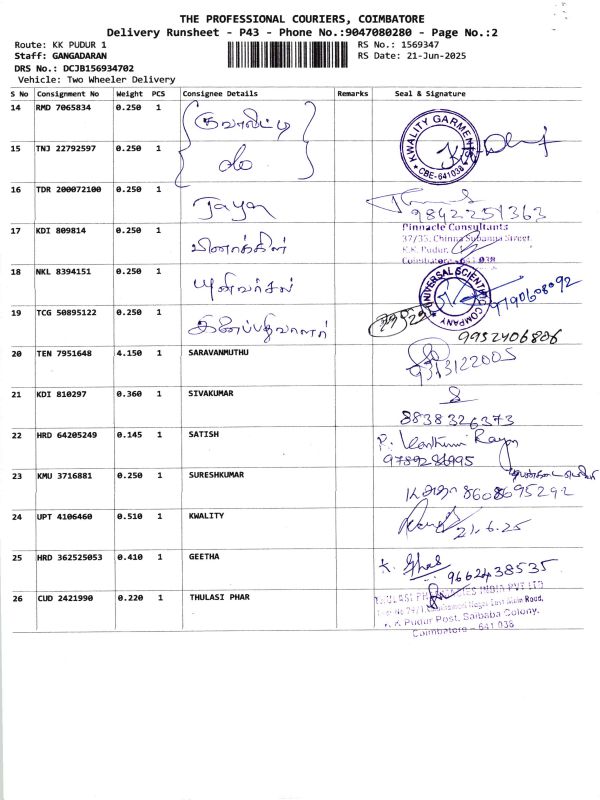 THE PROFESSIONAL COURIERS, COIMBATORE
Delivery Runsheet - P43 - Phone No.:9047080280 - Page No.:2
Route: KK PUDUR 1
RS No.: 1569347
Staff: GANGADARAN
RS Date: 21-Jun-2025
DRS No.: DCJB156934702
Vehicle: Two Wheeler Delivery
S No Consignment No Weight PCS Consignee Details Remarks Seal & Signature
14 RMD 7065834 0.250 1 குவாலிட்டி
KWALITY GARMENTS
CBE-641038
15 TNJ 22792597 0.250 1 do
16 TDR 200072100 0.250 1 Jayan
9842251363
17 KDI 809814 0.250 1 பினாக்கிள்
Pinnacle Consultants
37/35, Chinna Subanna Street,
K.K. Pudur,
Coimbatore - 641 038
18 NKL 8394151 0.250 1 யுனிவர்சல்
UNIVERSAL SCIENTIFIC COMPANY
9790608092
19 TCG 50895122 0.250 1
9952406806
20 TEN 7951648 4.150 1 SARAVANMUTHU
9313122005
21 KDI 810297 0.360 1 SIVAKUMAR
8838326373
22 HRD 64205249 0.145 1 SATISH
23 KMU 3716881 0.250 1 SURESHKUMAR
8608695292
24 UPT 4106460 0.510 1 KWALITY
21.6.25
25 HRD 362525053 0.410 1 GEETHA
9662438535
26 CUD 2421990 0.220 1 THULASI PHAR
INDIA PVT LTD
K K Pudur Post, Saibaba Colony,
Coimbatore - 641 038